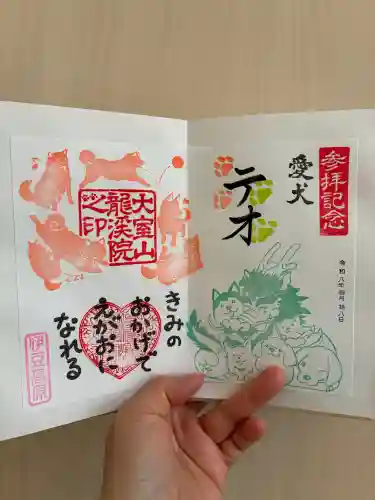 参拝記念
愛犬
テオ
令和八年四月十八日
大室山
龍渓院
之印
きみの
おかげで
えがおに
なれる
伊豆高原